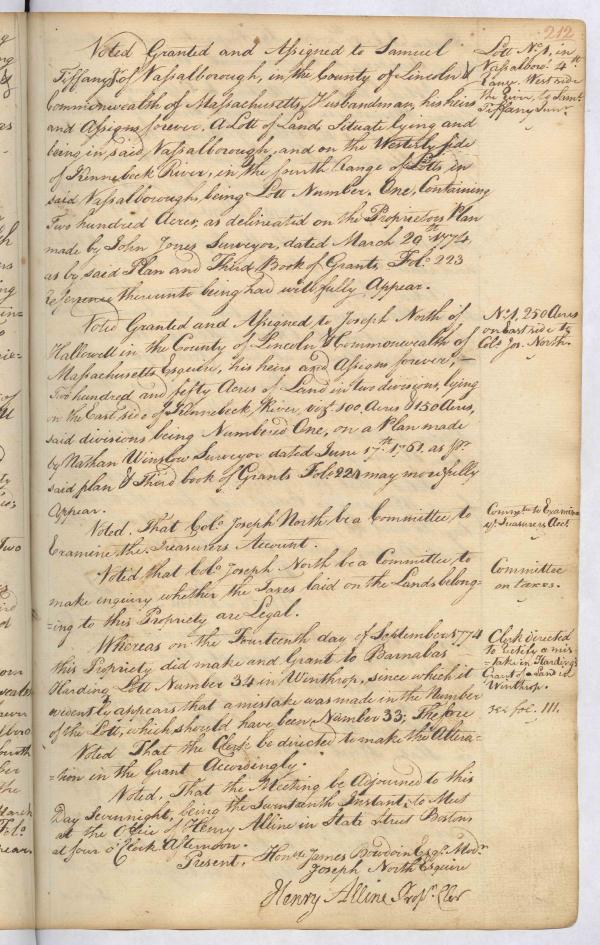 212
Voted Granted and Assigned to Samuel
Tiffany Jr of Vassalborough, in the County of Lincoln &
Commonwealth of Massachusetts, Husbandman, his heirs
and Assigns forever. A Lott of Lands Situate lying and
being in said Vassalborough, and on the Westerly side
of Kennebeck River, in the fourth Range of Lotts, in
said Vassalborough, being Lott Number One, Containing
Two hundred Acres, as delineated on the Proprietors Plan
made by John Jones Surveyor, dated March 29th 1774,
as by said Plan and Third Book of Grants, Folo 223
reference thereunto being had will fully Appear.
Lott No. 1, in
Vassalboro' 4th
Range West side
the River, to Saml
Tiffany Junr
Voted Granted and Assigned to Joseph North of
Hallowell in the County of Lincoln & Commonwealth of
Massachusetts Esquire, his heirs and Assigns forever,
Two hundred and fifty Acres of Land in two divisions, lying
on the East side of Kennebeck River, viz. 100 Acres & 150 Acres,
said divisions being Numbered One, on a Plan made
by Nathan Winslow Surveyor dated June 17th 1761, as pr
said plan & Third book of Grants Folo 224 may more fully
Appear.
No. 1, 250 Acres
on East side to
Colo Jos. North
Voted, That Colo Joseph North be a Committee to
Examine the Treasurers Account.
Comee to Examine
ye Treasurers Acct
Voted that Colo Joseph North be a Committee, to
make enquiry whether the Taxes laid on the Lands belong=
=ing to this Propriety are Legal.
Committee
on taxes.
Whereas on the Fourteenth day of September 1774
this Propriety did make and Grant to Barnabas
Harding, Lott Number 34 in Winthrop, since which it
evidently appears that a mistake was made in the Number
of the Lott, which should have been Number 33; Therefore
Voted That the Clerk be directed to make the Altera=
=tion in the Grant Accordingly.
Clerk directed
to rectify a mis=
=take in Harding's
Grant of a Land in
Winthrop.
see fol. 111.
Voted, That the Meeting be Adjourned to this
Day Sevennight, being the Seventeenth Instant; to Meet
at the Office of Henry Alline in State Street Boston
at four o'Clock Afternoon.
Present, Honble James Bowdoin Esqr Modr
Joseph North Esquire
Henry Alline Proprs Cler